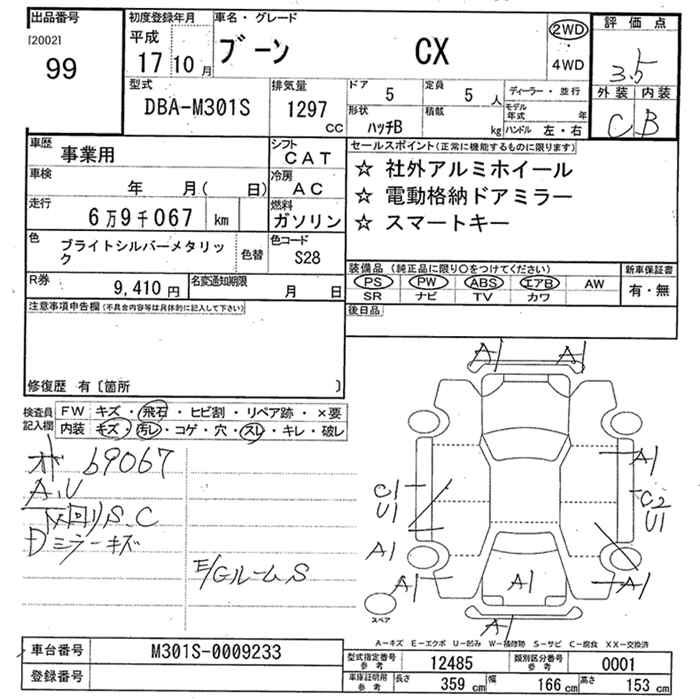 出品番号
[2002]
99
初度登録年月
平成
17 10 月
車名・グレード
ブーン CX
2WD
4WD
評価点
3.5
外装 内装
C B
型式
DBA-M301S
排気量
1297
cc
ドア
5
定員
5 人
形状
ハッチB
積載
kg
ディーラー・並行
モデル年式 年
ハンドル 左・右
車歴
事業用
シフト
CAT
車検
年 月( 日)
冷房
AC
走行
6万9千067 km
燃料
ガソリン
色
ブライトシルバーメタリッ
ク
色替
色コード
S28
R券
9,410 円
名変通知期限
月 日
セールスポイント(正常に機能するものに限ります)
☆ 社外アルミホイール
☆ 電動格納ドアミラー
☆ スマートキー
装備品 (純正品に限り○をつけてください)
PS PW ABS エアB AW
SR ナビ TV カワ
新車保証書
有・無
後日品
注意事項申告欄(不具合内容等は具体的に記入して下さい)
修復歴 有〔箇所 〕
検査員
記入欄
FW キズ・飛石・ヒビ割・リペア跡・×要
内装 キズ・汚レ・コゲ・穴・スレ・キレ・破レ
オド 69067
A.U
回りS.C
Dミラーキズ
E/GルームS
A1 A1
A1
C1
U1
C2
U1
A1
A1 A1 A1
A1
スペア
A-キズ E-エクボ U-凹み W-補修跡 S-サビ C-腐食 XX-交換済
車台番号
M301S-0009233
登録番号
型式指定番号
参考
12485
類別区分番号
参考
0001
車庫証明用
参考
長さ
359 cm
幅
166 cm
高さ
153 cm